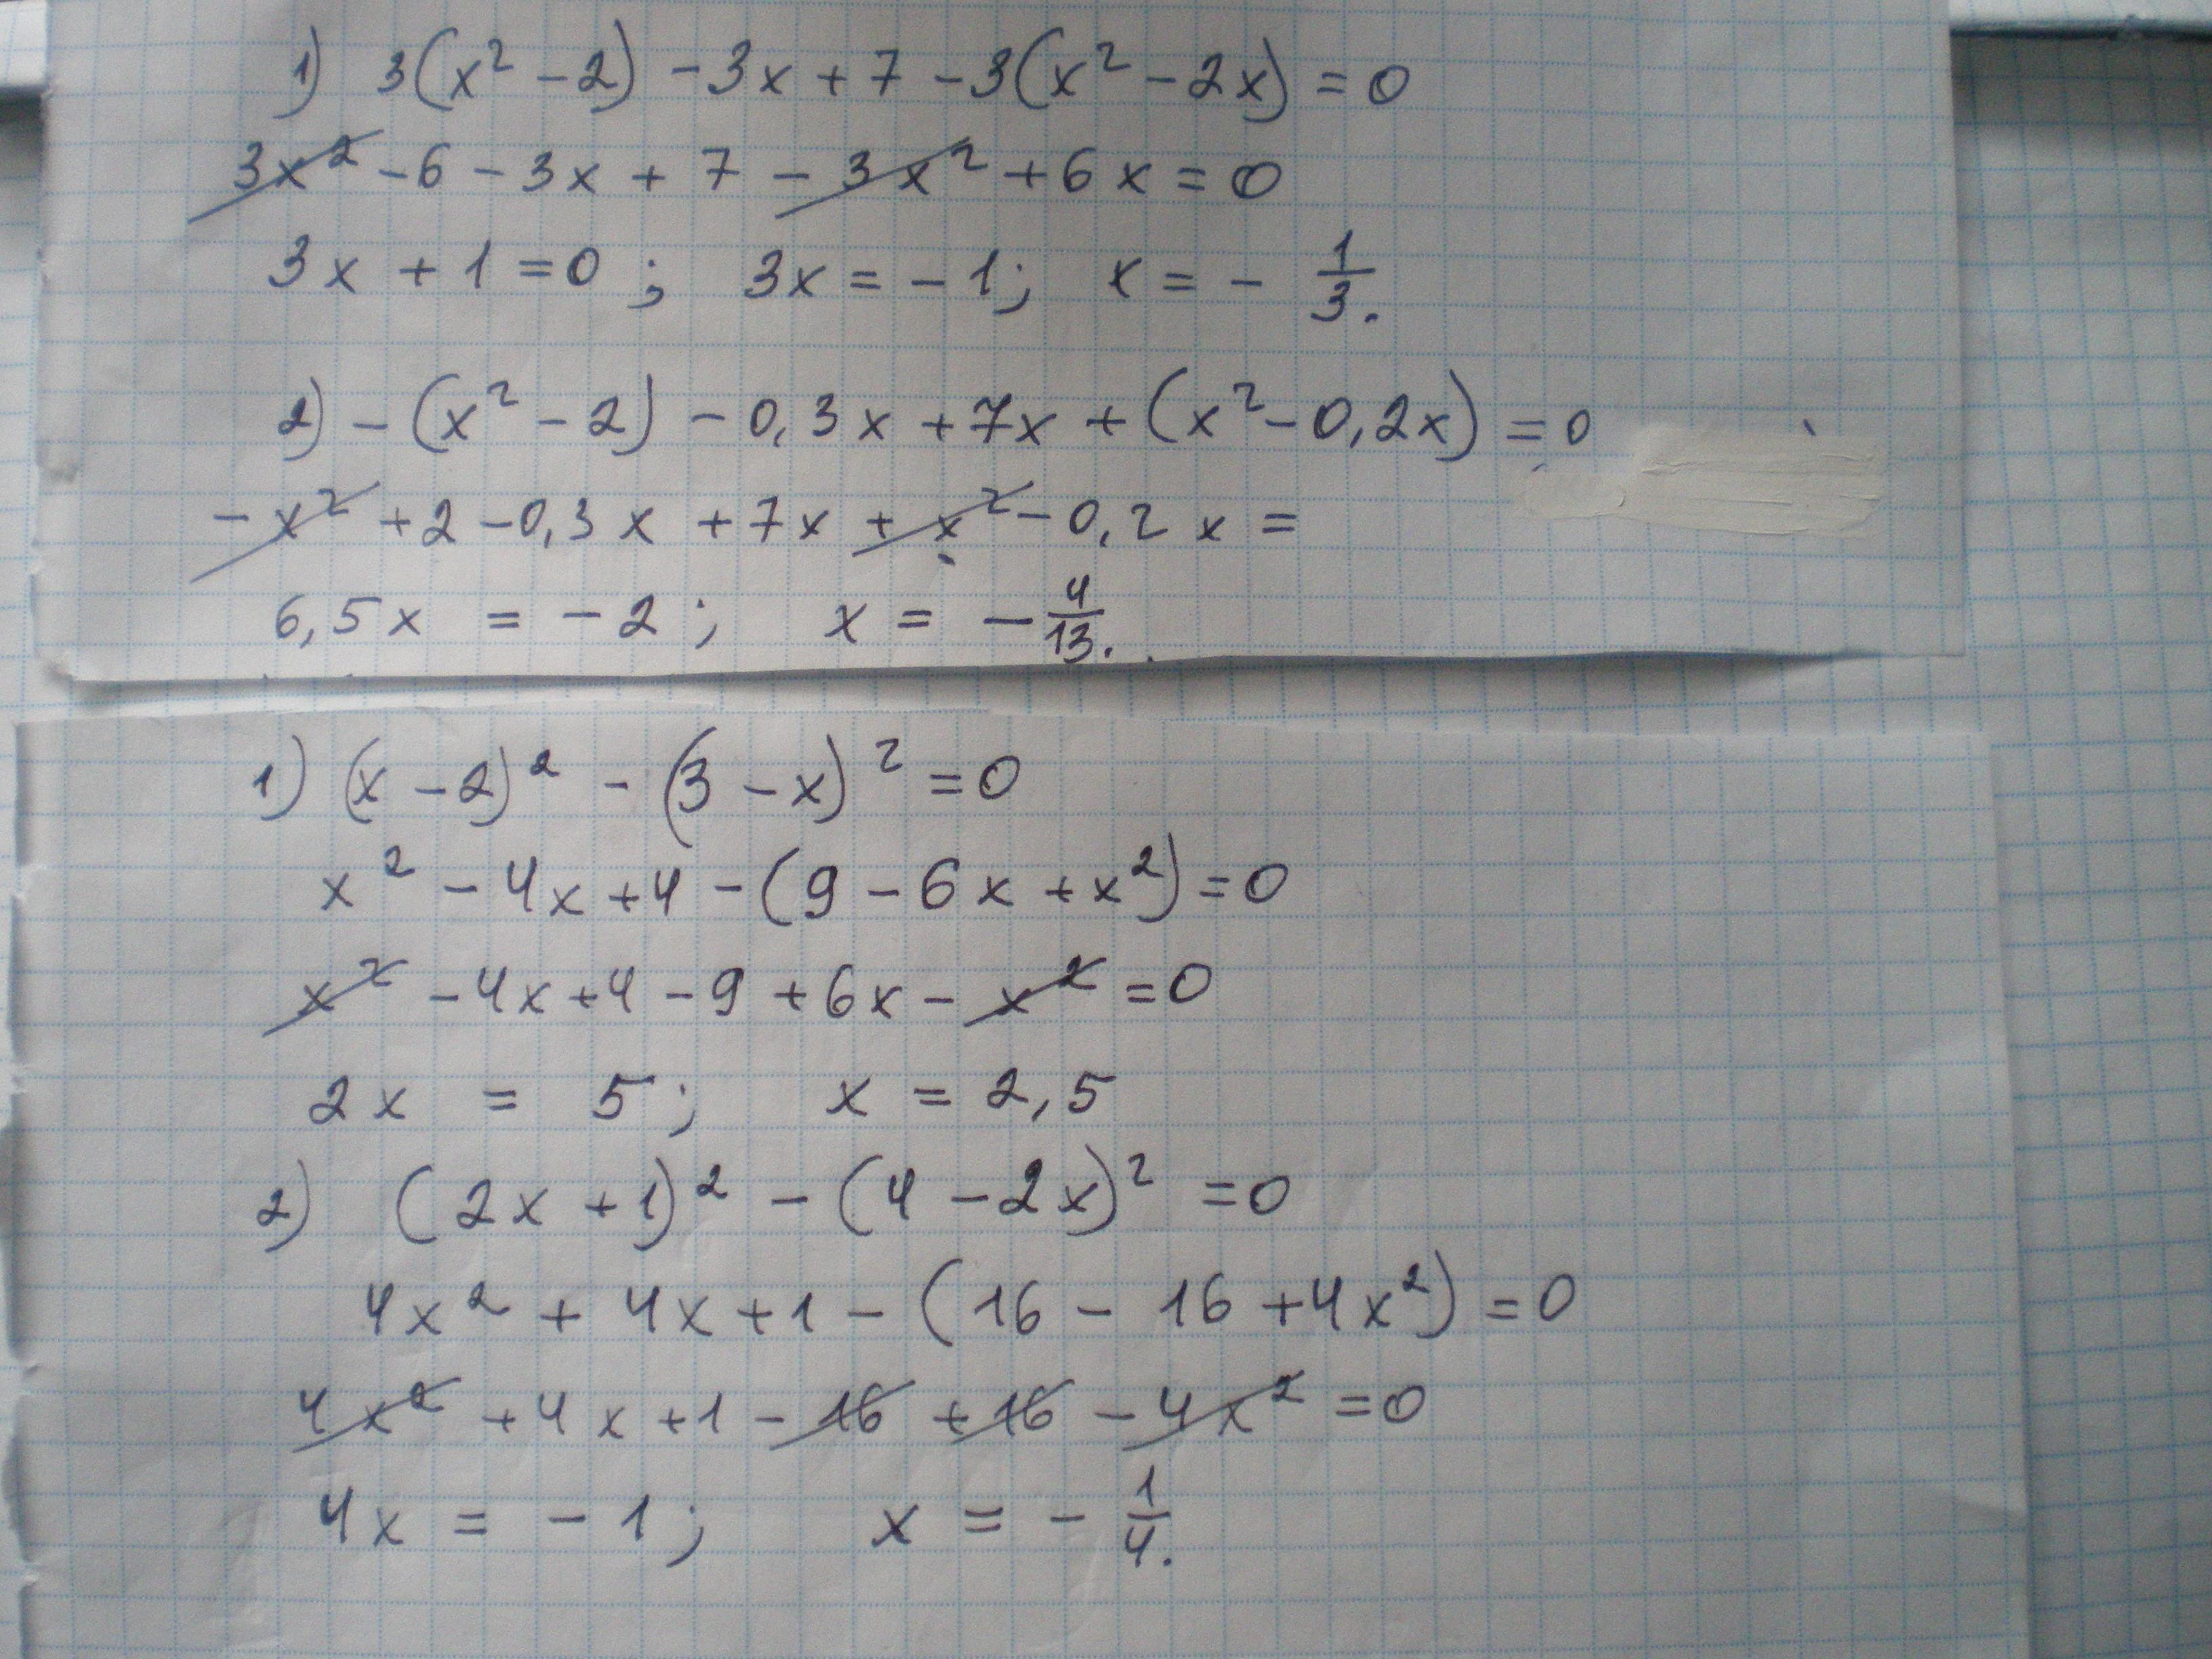 1) 3(x² - 2) - 3x + 7 - 3(x² - 2x) = 0
3x² - 6 - 3x + 7 - 3x² + 6x = 0
3x + 1 = 0 ; 3x = - 1 ; x = - 1/3.
2) - (x² - 2) - 0,3x + 7x + (x² - 0,2x) = 0
- x² + 2 - 0,3x + 7x + x² - 0,2x =
6,5x = - 2 ; x = - 4/13.
1) (x - 2)² - (3 - x)² = 0
x² - 4x + 4 - (9 - 6x + x²) = 0
x² - 4x + 4 - 9 + 6x - x² = 0
2x = 5 ; x = 2,5
2) (2x + 1)² - (4 - 2x)² = 0
4x² + 4x + 1 - (16 - 16 + 4x²) = 0
4x² + 4x + 1 - 16 + 16 - 4x² = 0
4x = - 1 ; x = - 1/4.